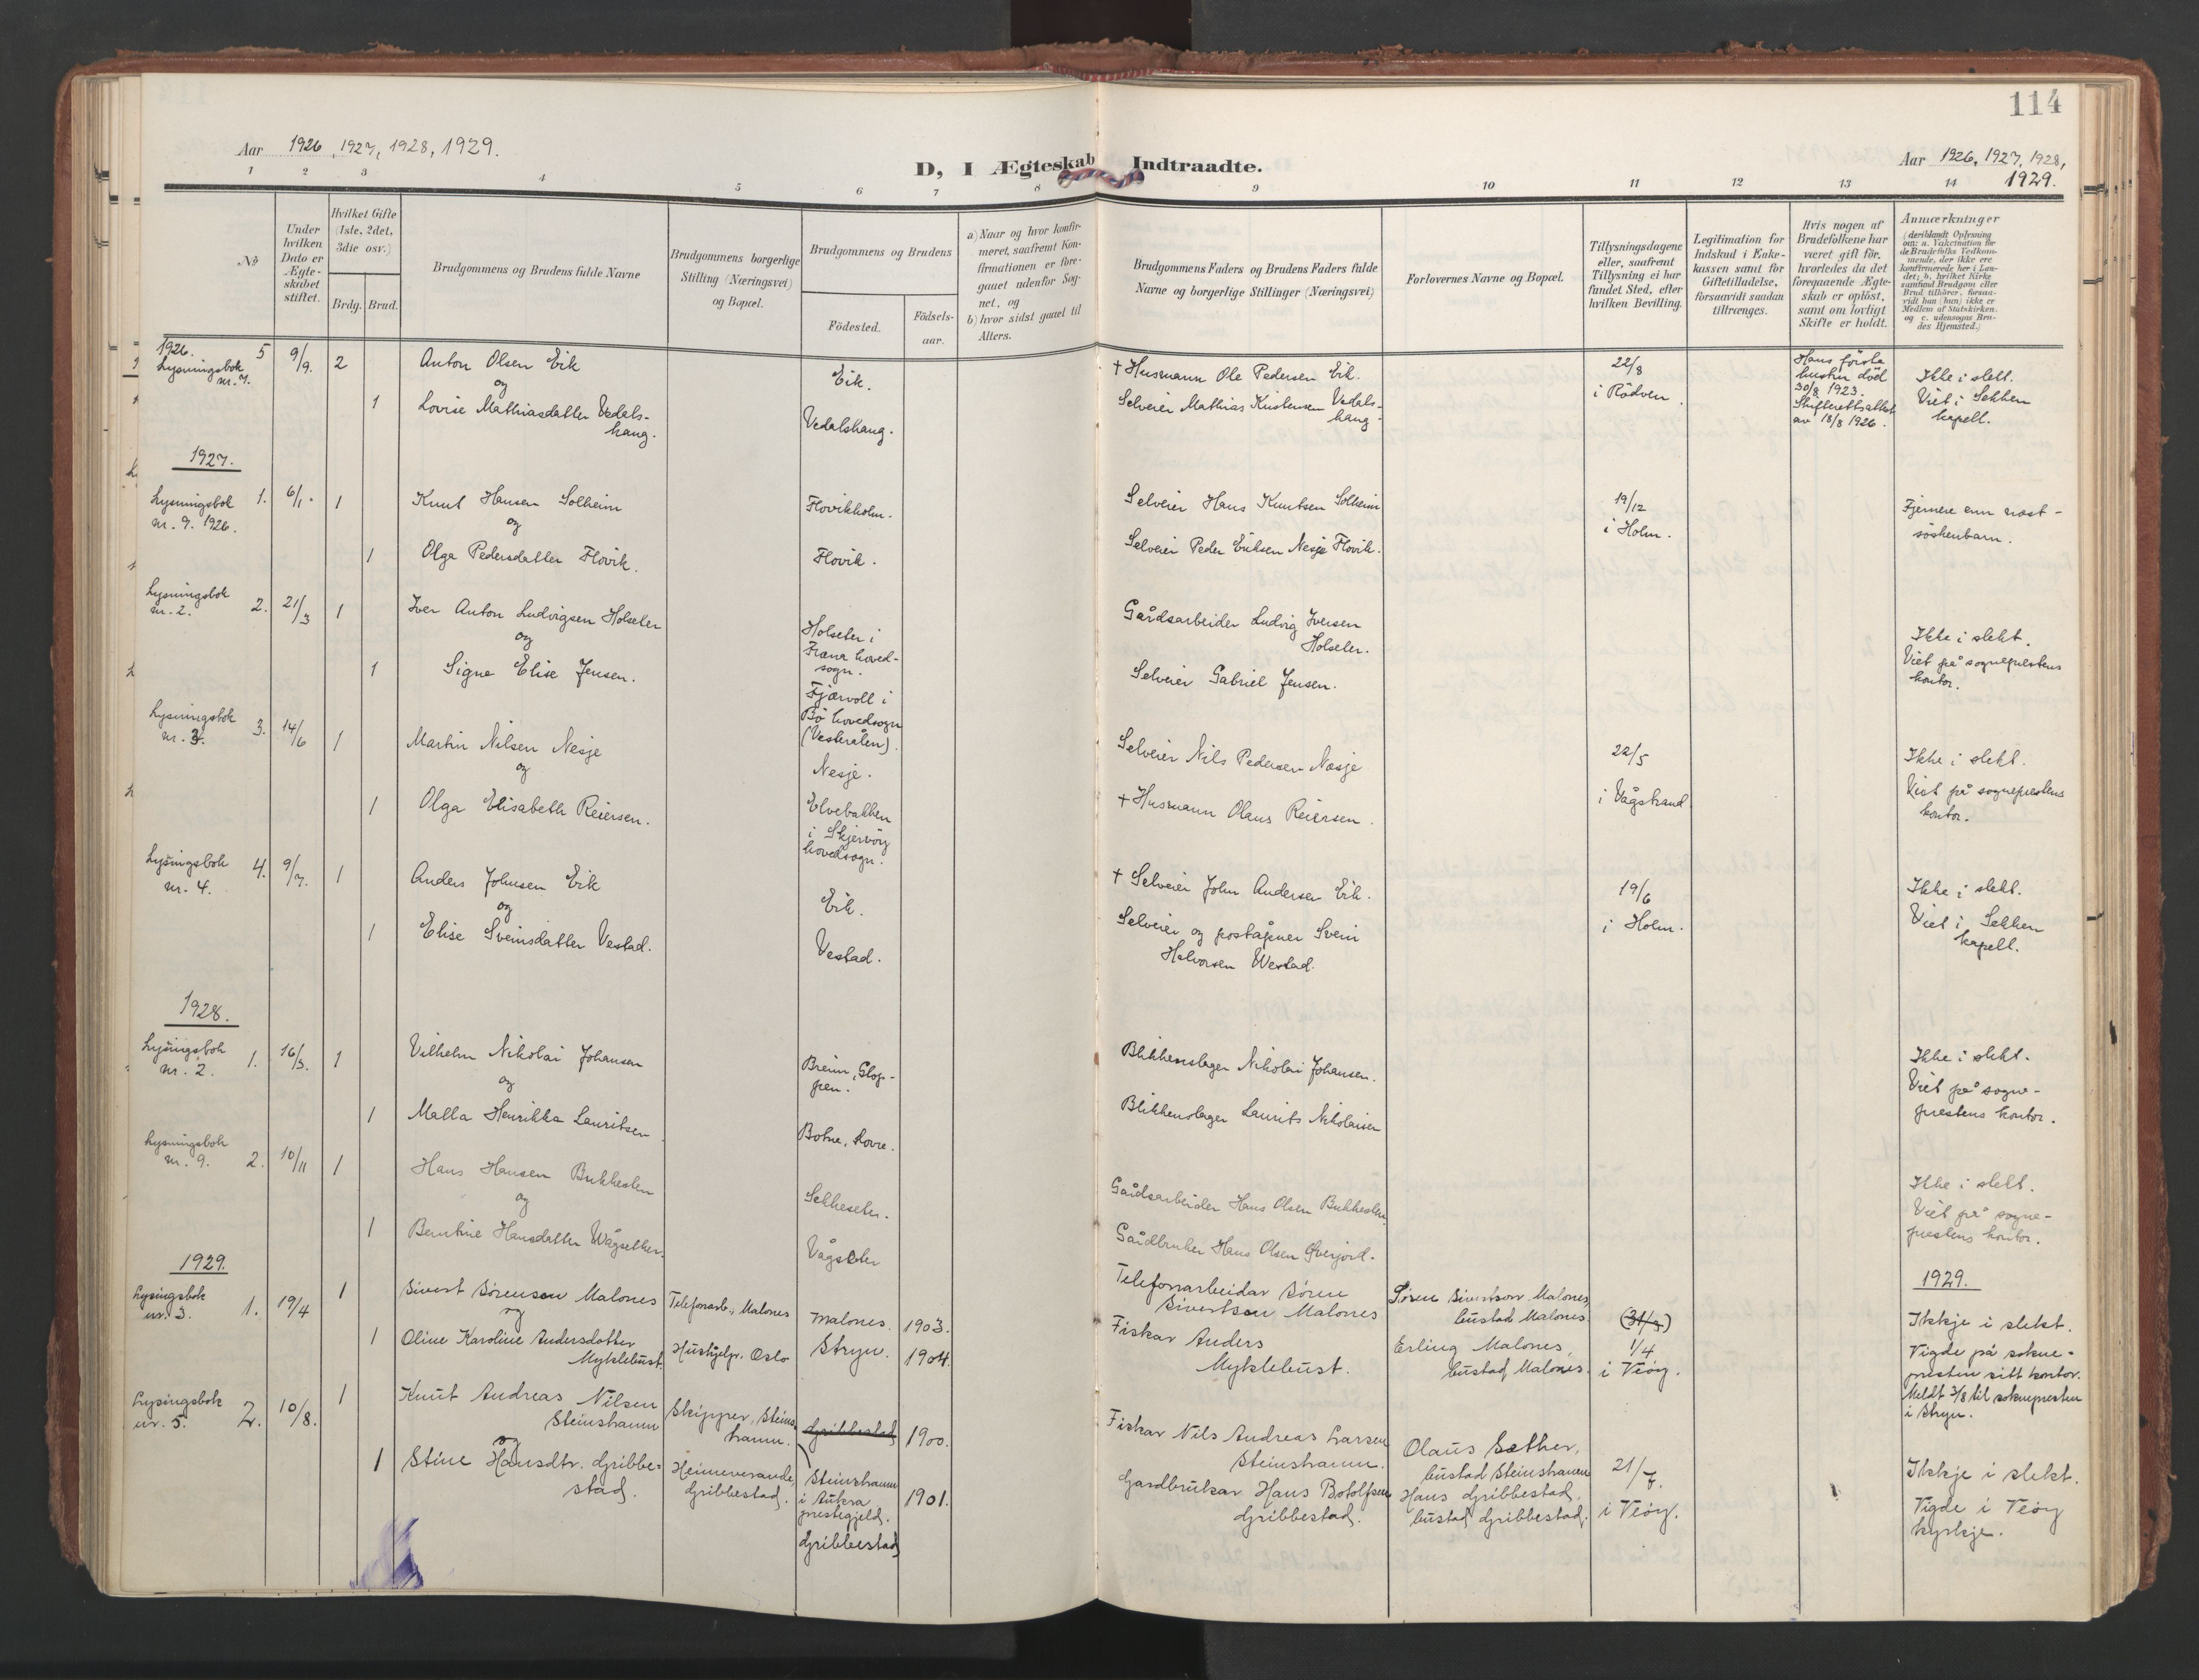 114
Aar 1926, 1927, 1928, 1929.
D, I Ægteskab Indtraadte.
Aar 1926, 1927, 1928,
1929.
1 2 3 4 5 6 7 8 9 10 11 12 13 14
No
Under
hvilken
Dato er
Ægte-
skabet
stiftet.
Hvilket Gifte
(1ste, 2det,
3die osv.)
Brdg. Brud.
Brudgommens og Brudens fulde Navne
Brudgommens borgerlige
Stilling (Næringsvei)
og Bopæl.
Brudgommens og Brudens
Fødested.
Fødsels-
aar.
a) Naar og hvor konfir-
meret, saafremt Kon-
firmationen er fore-
gaaet udenfor Sog-
net, og
b) hvor sidst gaaet til
Alters.
Brudgommens Faders og Brudens Faders fulde
Navne og borgerlige Stillinger (Næringsvei)
Forlovernes Navne og Bopæl.
Tillysningsdagene
eller, saafremt
Tillysning ei har
fundet Sted, efter
hvilken Bevilling.
Legitimation for
Indskud i Enke-
kassen samt for
Giftetilladelse,
forsaavidt saadan
tiltrænges.
Hvis nogen af
Brudefolkene har
været gift før,
hvorledes da det
foregaaende Ægte-
skab er opløst,
samt om lovligt
Skifte er holdt.
Anmærkninger
(deriblandt Oplysning
om: a. Vakcination for
de Brudefolks Vedkom-
mende, der ikke ere
konfirmerede her i Lan-
det; b. hvilket Kirke
samfund Brudgom eller
Brud tilhører, forsaa-
vidt han (hun) ikke er
Medlem af Statskirken.
og c. udensogns Bru-
des Hjemsted.)
1926.
Lysningsbok
nr. 7.
5 9/9. 2
Anton Olsen Eik
og
1 Lovise Mathiasdatter Vedals-
haug.
Eik.
Vedalshaug.
+ Husmann Ole Pedersen Eik.
Selveier Mathias Kristensen Vedals-
haug.
22/8
i Rödven.
Hans første
hustru död
30/8 1923.
Skifterettsattest
av 18/8 1926.
Ikke i slekt.
Viet i Sekken
kapell.
1927.
Lysningsbok
nr. 9. 1926.
1. 6/1. 1
Knut Hansen Solheim
og
1 Olga Pedersdatter Flovik.
Flovikholm.
Flovik.
Selveier Hans Knutsen Solheim
Selveier Peder Eriksen Nesje Flovik.
19/12
i Holm.
Fjernere enn næst-
söskenbarn.
Lysningsbok
nr. 2.
2. 21/3 1
Iver Anton Ludvigsen Holseter
og
1 Signe Elise Jensen.
Holseter i
Fræna hoved-
sogn.
Fjærvoll i
Bö hovedsogn
(Vesterålen).
Gårdsarbeider Ludvig Iversen
Holseter.
Selveier Gabriel Jensen.
Ikke i slekt.
Viet på sogneprestens
kontor.
Lysningsbok
nr. 3.
3. 14/6 1
Martin Nilsen Nesje
og
1 Olga Elisabeth Reiersen.
Nesje.
Elvebakken
i Skjervöy
hovedsogn.
Selveier Nils Pedersen Nesje
+ Husmann Olaus Reiersen.
22/5
i Vågstrand
Ikke i slekt.
Viet på sogneprestens
kontor.
Lysingsbok
nr. 4.
4. 9/7. 1
Anders Johnsen Eik
og
1 Elise Sveinsdatter Vestad.
Eik.
Vestad.
+ Selveier John Andersen Eik.
Selveier og poståpner Svein
Halvorsen Westad.
19/6
i Holm.
Ikke i slekt.
Viet i Sekken
kapell.
1928.
Lysingsbok
nr. 2.
1. 16/3. 1
Vilhelm Nikolai Johansen
og
1 Malla Henrikka Lauritsen
Breim, Glop-
pen.
Botne, Hovre.
Blikkenslager Nikolai Johansen.
Blikkenslager Laurits Nikolaisen
Ikke i slekt.
Viet på sogne-
prestens kontor.
Lysningsbok
nr. 9.
2. 10/11 1
Hans Hansen Bukkesten
og
1 Berntine Hansdatter Vågsether.
Sekkeseter.
Vågseter
Gårdsarbeider Hans Olsen Bukkesten
Gårdbruker Hans Olsen Överjord.
Ikke i slekt.
Viet på sogne-
prestens kontor.
1929.
1929.
Lysingsbok
nr. 3.
1. 19/4 1
Sivert Sørenson Malones
og
1 Oline Karoline Andersdotter
Myklebust.
Telefonarb., Malones
Hushjelp. Oslo
Malones. 1903.
Stryn. 1904.
Telefonarbeidar Søren
Sivertson Malones
Fiskar Anders
Myklebust.
Søren Sivertson Malones,
bustad Malones.
Erling Malones,
bustad Malones.
(31/3)
1/4
i Veøy.
Ikkje i slekt.
Vigde på sokne-
presten sitt kontor.
Meldt 3/8 til soknepresten
i Stryn.
Lysingsbok
nr. 5.
2. 10/8. 1
Knut Andreas Nilsen
Steinshamn
og
1 Stine Hansdtr. Gribbe-
stad.
Skipper, Steins
hamn.
Heimeverande,
Gribbestad.
Gribbestad 1900.
Steinshamn
i Aukra
prestegjeld.
1901.
Gribbestad
Fiskar Nils Andreas Larsen
Steinshamn.
Gardbrukar Hans Botolfsen
Gribbestad.
Olaus Sæther,
bustad Steinshamn
Hans Gribbestad,
bustad Gribbestad.
21/7.
i Veøy.
Ikkje i slekt.
Vigde i Veøy
kyrkje.